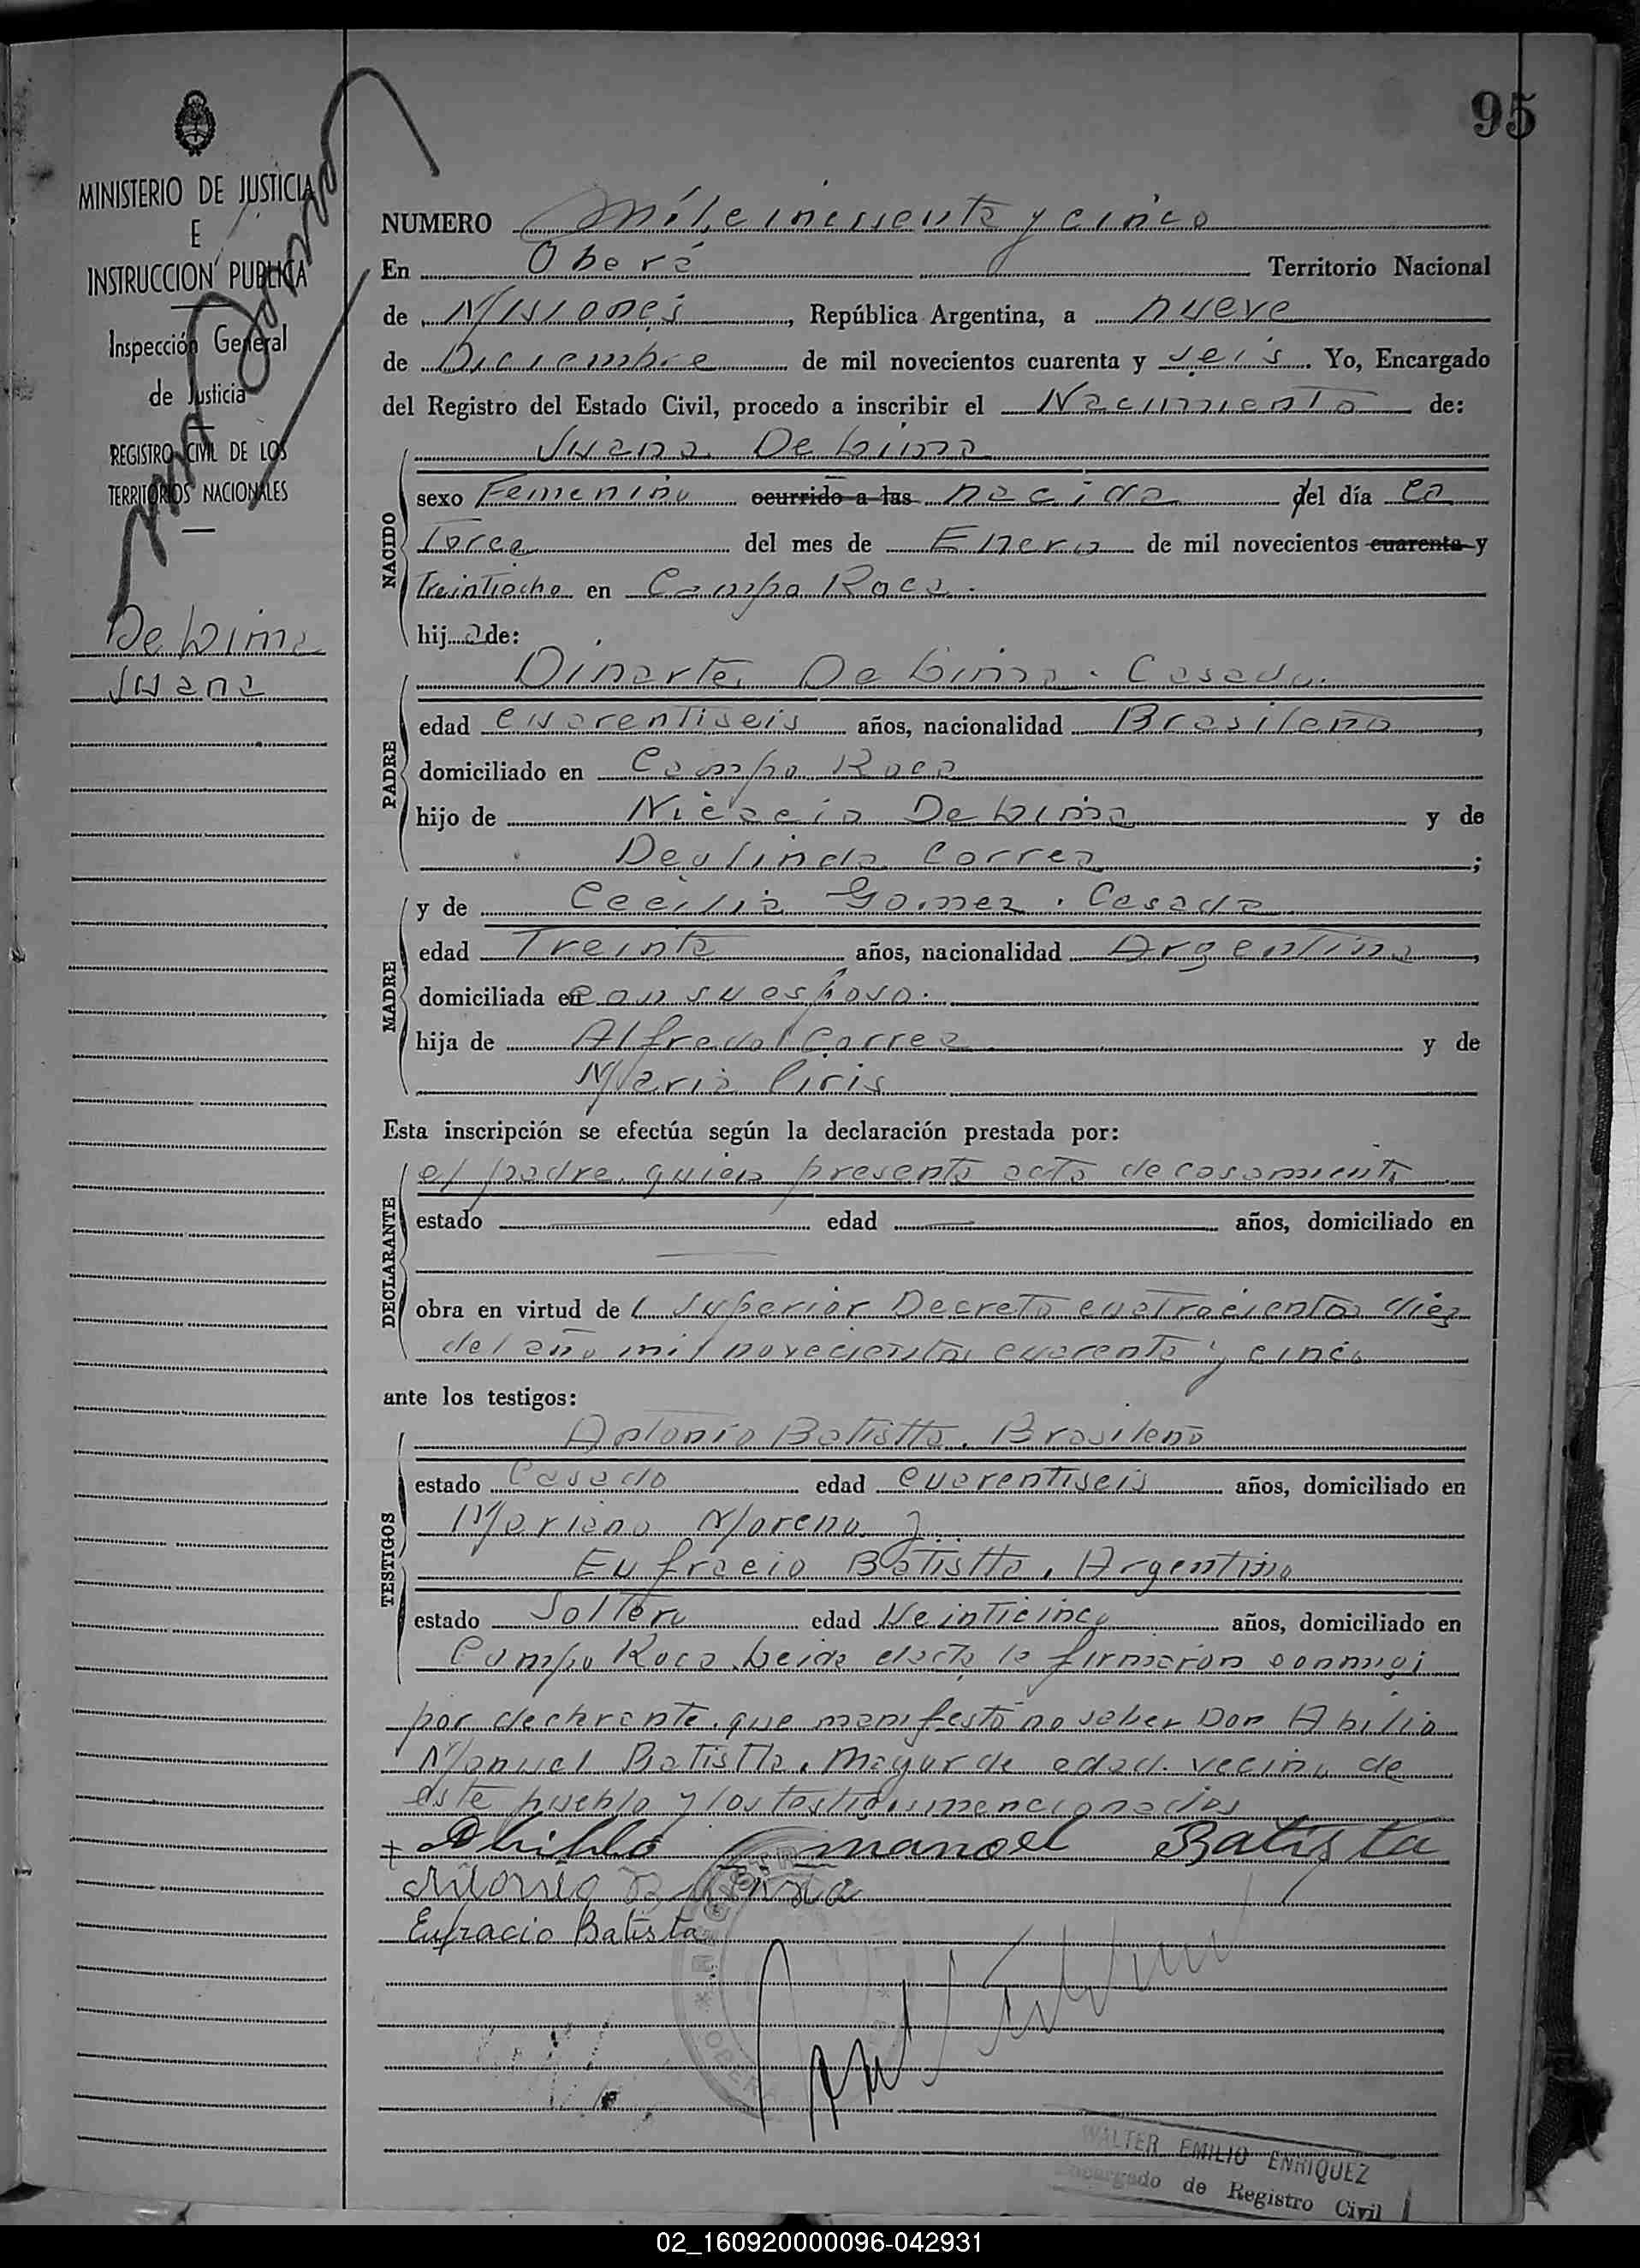 95
MINISTERIO DE JUSTICIA
E
INSTRUCCION PUBLICA
Inspección General
de Justicia
REGISTRO CIVIL DE LOS
TERRITORIOS NACIONALES
De Lima
Juana
NUMERO Mil y cinco
En Oberá Territorio Nacional
de Misiones, República Argentina, a nueve
de Diciembre de mil novecientos cuarenta y seis. Yo, Encargado
del Registro del Estado Civil, procedo a inscribir el Nacimiento de:
Juana De Lima
NACIDO
sexo Femenino ocurrido a las nacida del día ca
Torce del mes de Enero de mil novecientos cuarenta y
treintiocho en Campo Roca.
hija de:
PADRE
Dinarte De Lima. Casado.
edad cuarentiseis años, nacionalidad Brasileño,
domiciliado en Campo Roca
hijo de De Lima y de
Deolinda Correa;
MADRE
y de Cecilia Gomez. Casada
edad Treinta años, nacionalidad Argentina,
domiciliada en con su esposo.
hija de Alfredo Correa y de
Maria Piris
Esta inscripción se efectúa según la declaración prestada por:
DECLARANTE
el padre, quien presenta acta de casamiento
estado edad años, domiciliado en
obra en virtud del Superior Decreto cuatrocientos diez
del año mil novecientos cuarenta y cinco
ante los testigos:
TESTIGOS
Antonio Batistta. Brasileño
estado Casado edad cuarentiseis años, domiciliado en
Mariano Moreno y
Eufracio Batistta, Argentino
estado Soltero edad Veinticinco años, domiciliado en
Campo Roca. Leida el acta la firmaron conmigo
por declarante, que manifestó no saber Don Abilio
Manuel Batistta, mayor de edad. vecino de
este pueblo y los testigos mencionados
Abillo Manoel Batista
Eufracio Batista
WALTER EMILIO ENRIQUEZ
Encargado de Registro Civil
02_160920000096-042931